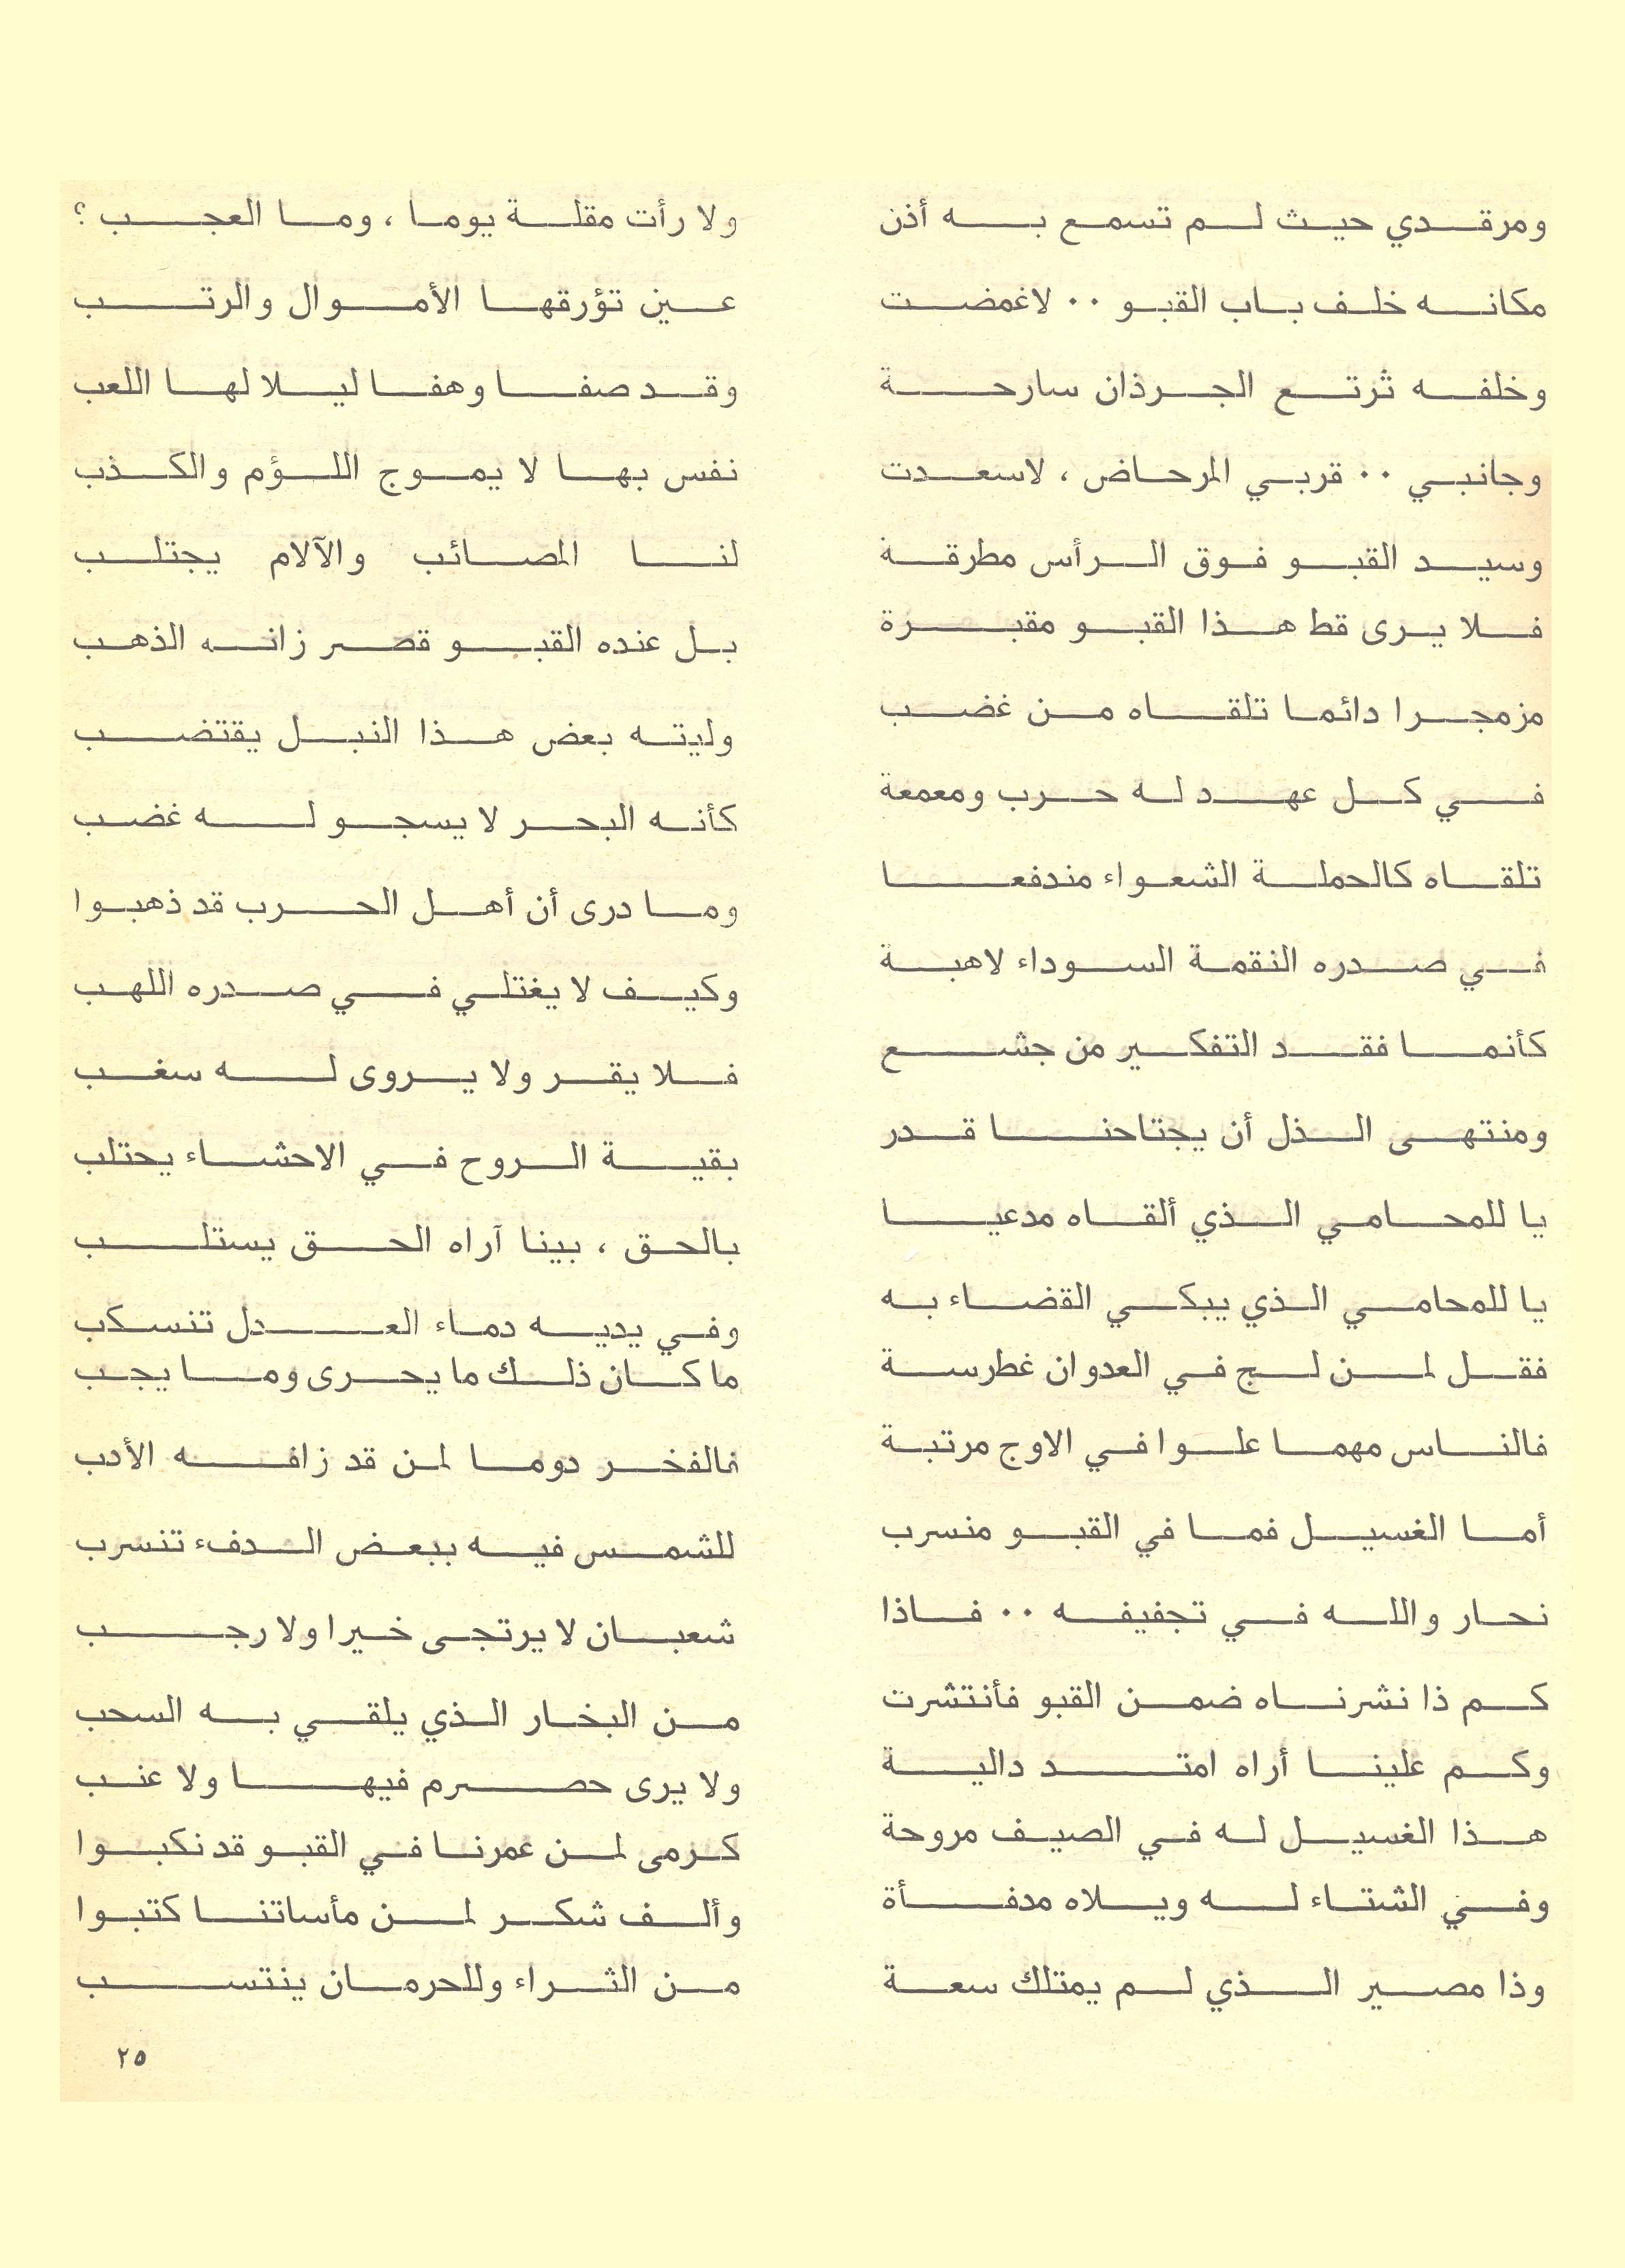 ومرقدي حيث لم تسمع به أذن ولا رأت مقلة يوما ، وما العجب ؟
مكانه خلف باب القبو ٠٠ لاغمضت عين تؤرقها الأموال والرتب
وخلفه ترتع الجرذان سارحة وقد صفا وهفا ليلا لها اللعب
وجانبي ٠٠ قربي المرحاض ، لاسعدت نفس بها لا يموج اللؤم والكذب
وسيد القبو فوق الرأس مطرقة لنا المصائب والآلام يجتلب
فلا يرى قط هذا القبو مقبرة بل عنده القبو قصر زانه الذهب
مزمجرا دائما تلقاه من غضب وليته بعض هذا النبل يقتضب
في كل عهد له حرب ومعمعة كأنه البحر لا يسجو له غضب
تلقاه كالحملة الشعواء مندفعا وما درى أن أهل الحرب قد ذهبوا
في صدره النقمة السوداء لاهبة وكيف لا يغتلي في صدره اللهب
كأنما فقد التفكير من جشع فلا يقر ولا يروى له سغب
ومنتهى الذل أن يجتاحنا قدر بقية الروح في الاحشاء يحتلب
يا للمحامي الذي ألقاه مدعيا بالحق ، بينا آراه الحق يستلب
يا للمحامي الذي يبكي القضاء به وفي يديه دماء العدل تنسكب
فقل لمن لج في العدوان غطرسة ما كان ذلك ما يحرى وما يجب
فالناس مهما علوا في الاوج مرتبة فالفخر دوما لمن قد زافه الأدب
أما الغسيل فما في القبو منسرب للشمس فيه ببعض الدفء تنسرب
نحار والله في تجفيفه ٠٠ فاذا شعبان لا يرتجى خيرا ولا رجب
كم ذا نشرناه ضمن القبو فأنتشرت من البخار الذي يلقي به السحب
وكم علينا أراه امتد دالية ولا يرى حصرم فيها ولا عنب
هذا الغسيل له في الصيف مروحة كرمى لمن عمرنا في القبو قد نكبوا
وفي الشتاء له ويلاه مدفأة وألف شكر لمن مأساتنا كتبوا
وذا مصير الذي لم يمتلك سعة من الثراء وللحرمان ينتسب
٢٥